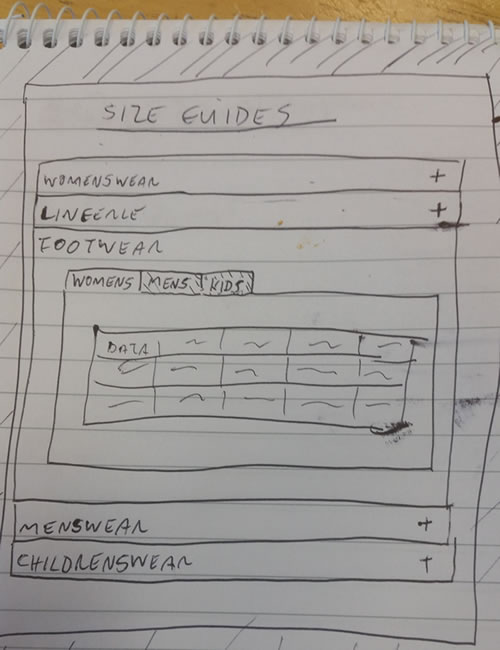 SIZE GUIDES
WOMENSWEAR +
LINGERIE +
FOOTWEAR
WOMENS MENS KIDS
DATA
MENSWEAR +
CHILDRENSWEAR +